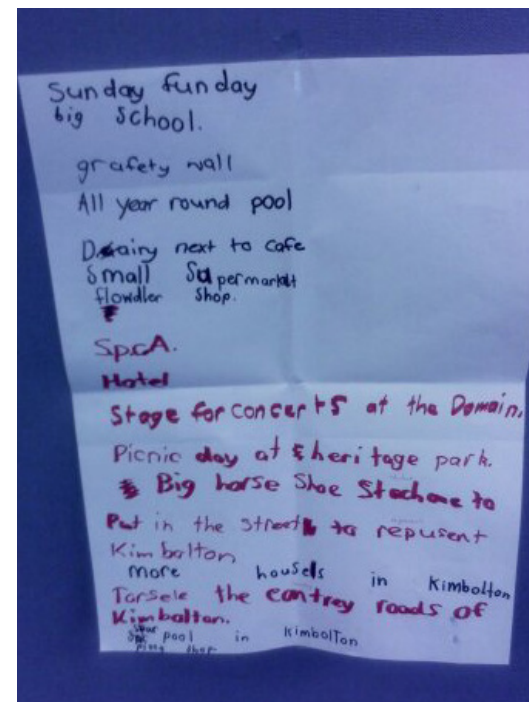 Sunday funday
big School.
grafety wall
All year round pool
Dairy next to cafe
Small Supermarket
flowdler Shop.
SpcA.
Hotel
Stage for concerts at the Domain.
Picnic day at heritage park.
Big horse Shoe Stachone to
Put in the street to repusent
Kimbolton
more housels in Kimbolton
Tarsele the contrey roads of
Kimbolton.
Spar pool in Kimbolton
shop